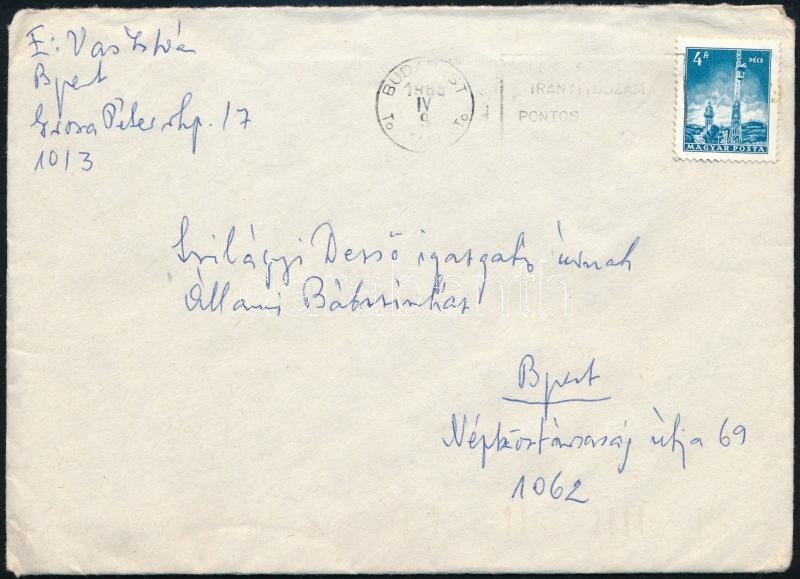 E: Vas István
Bpest
Groza Péter rkp. 17
1013
BUDAPEST
1986
IV
9
IRÁNYÍTÓSZÁM
PONTOS
4 Ft
PÉCS
MAGYAR POSTA
Szilágyi Dezső igazgató úrnak
Állami Bábszínház
darabanth
Bpest
Népköztársaság útja 69
1062